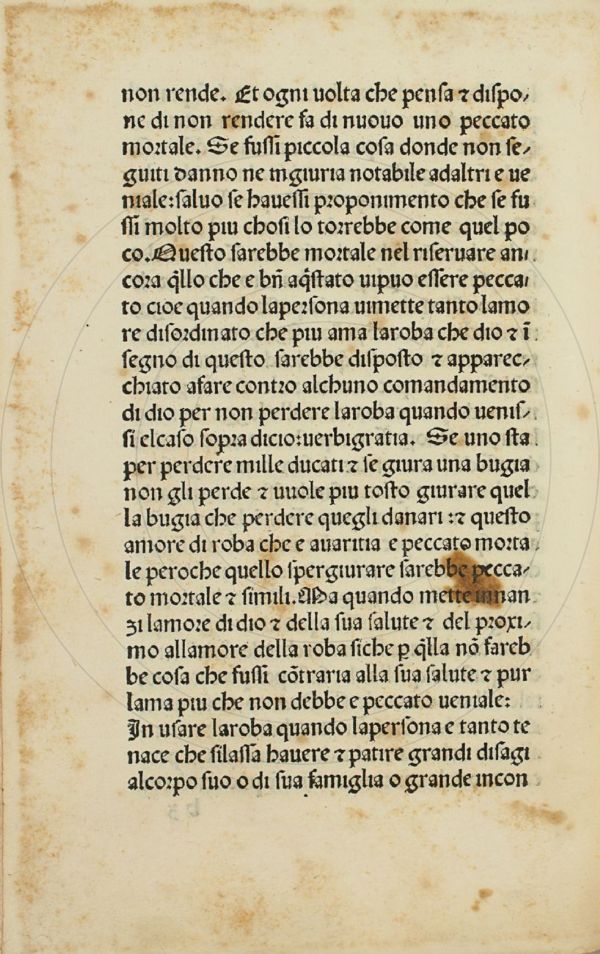 non rende. Et ogni uolta che pensa ⁊ dispo⸗
ne di non rendere fa di nuouo uno peccato
mortale. Se fussi piccola cosa donde non se⸗
guiti danno ne ingiuria notabile adaltri e ue
niale: saluo se hauessi proponimento che se fu
ssi molto piu chosi lo torrebbe come quel po
co. Questo sarebbe mortale nel riseruare an⸗
cora q̃llo che e bñ aq̃stato ui puo essere pecca⸗
to cioe quando lapersona uimette tanto lamo
re disordinato che piu ama laroba che dio ⁊ ĩ
segno di questo sarebbe disposto ⁊ apparec⸗
chiato afare contro alchuno comandamento
di dio per non perdere laroba quando uenis⸗
si elcaso sopra dicio: uerbigratia. Se uno sta
per perdere mille ducati ⁊ se giura una bugia
non gli perde ⁊ uuole piu tosto giurare quel
la bugia che perdere quegli danari :⁊ questo
amore di roba che e auaritia e peccato morta
le peroche quello spergiurare sarebbe pecca⸗
to mortale ⁊ simili. Ma quando mette innan
zi lamore di dio ⁊ della sua salute ⁊ del proxi⸗
mo allamore della roba siche ꝑ q̃lla nõ fareb
be cosa che fussi cõtraria alla sua salute ⁊ pur
lama piu che non debbe e peccato ueniale:
In usare laroba quando lapersona e tanto te
nace che silassa hauere ⁊ patire grandi disagi
alcorpo suo o di sua famiglia o grande incon